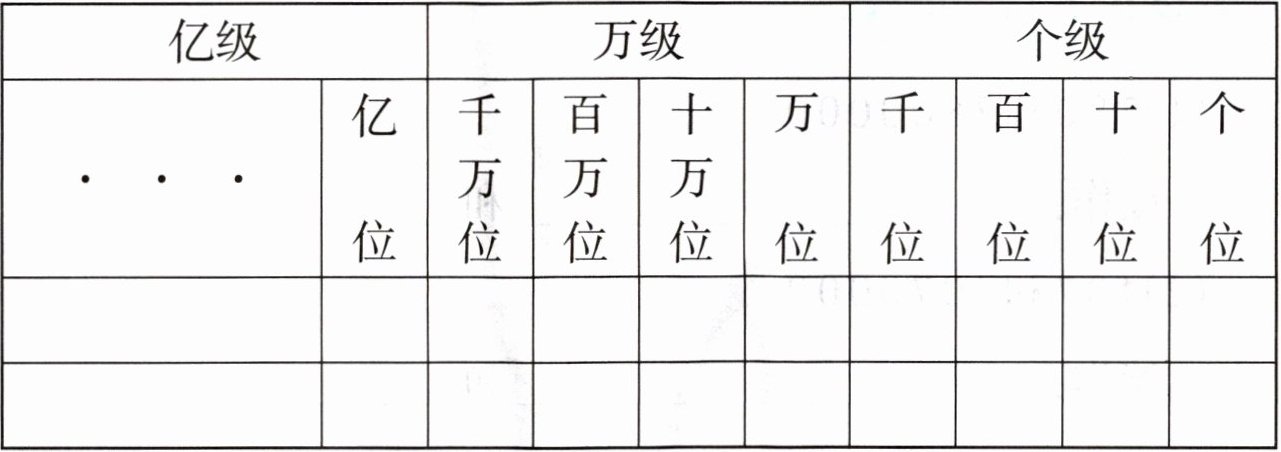 亿级 万级 个级
· · · 亿位 千万位 百万位 十万位 万位 千位 百位 十位 个位